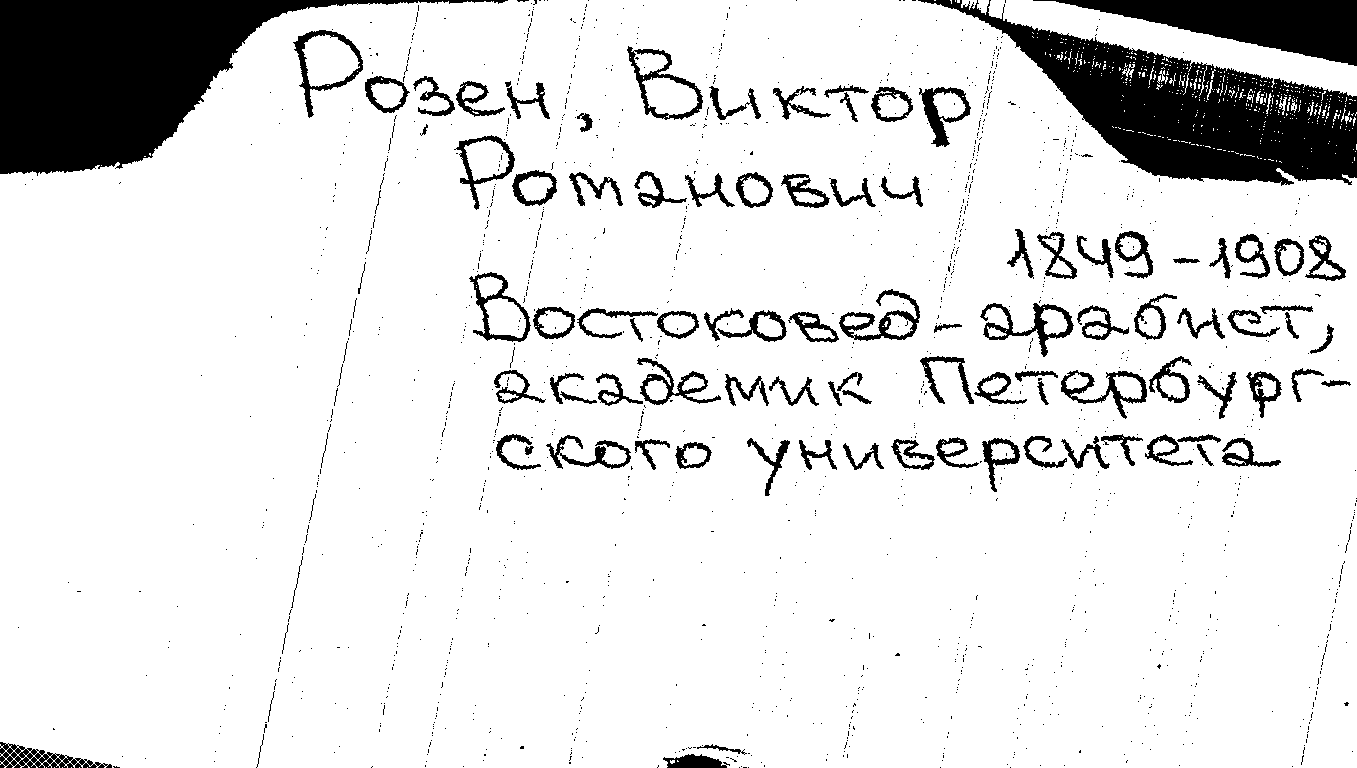 Розен, Виктор
Романович
1849-1908
Востоковед-арабист,
академик Петербург-
ского университета